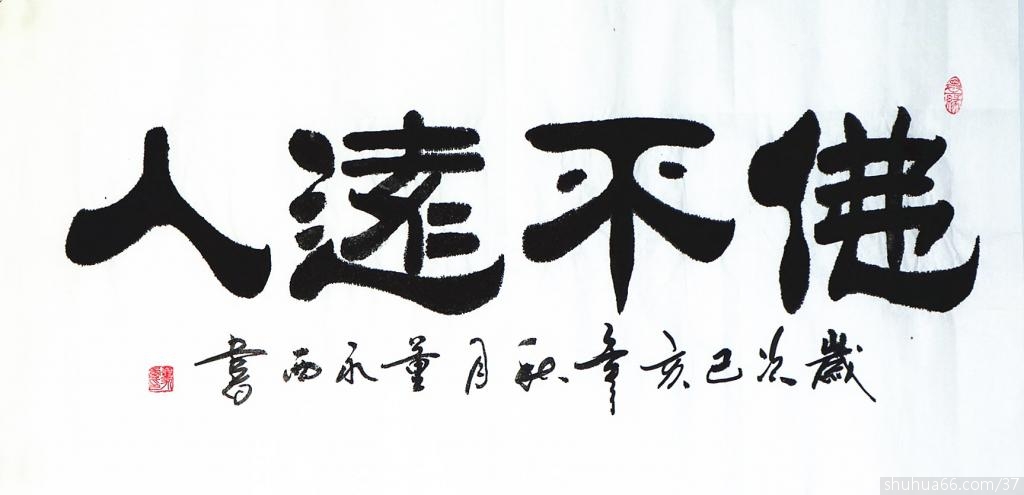 佛不遠人
歲次己亥年秋月董永西書
shuhua66.com/37